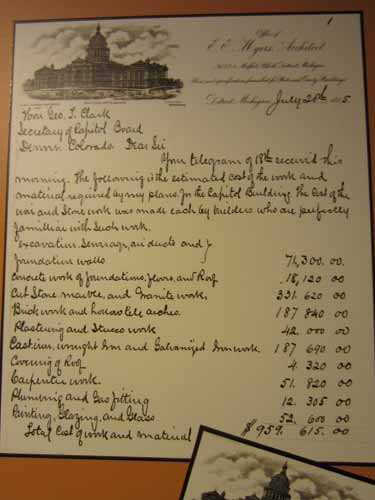 1
Office of
E. E. Myers, Architect
Detroit, Michigan
Plans and specifications furnished for State and County Buildings
Detroit, Michigan, July 20th 5
Hon Geo. T. Clark
Secretary of Capitol Board
Denver. Colorado. Dear Sir
Your telegram of 18th received this
morning. The following is the estimated cost of the work and
material required by my plans. for the Capitol Building. The Cost of the
iron and Stone work was made each by builders who are perfectly
familiar with such work.
Excavation, Sewerage, air ducts and }
foundation walls 71,300.00
Concrete work of foundations, floors, and Roof 18,120 00
Cut Stone marble, and Granite work, 331 620 00
Brick work and hollow tile arches. 187 840 00
Plastering and Stucco work 42. 000 00
Cast iron, wrought Iron and Galvanized Iron work. 187 690 00
Covering of Roof 4. 320 00
Carpenter work. 51. 820 00
Plumbing and Gas fitting 12. 305 00
Painting, Glazing, and Glass. 52. 600 00
Total Cost of work and material $ 959. 615. 00